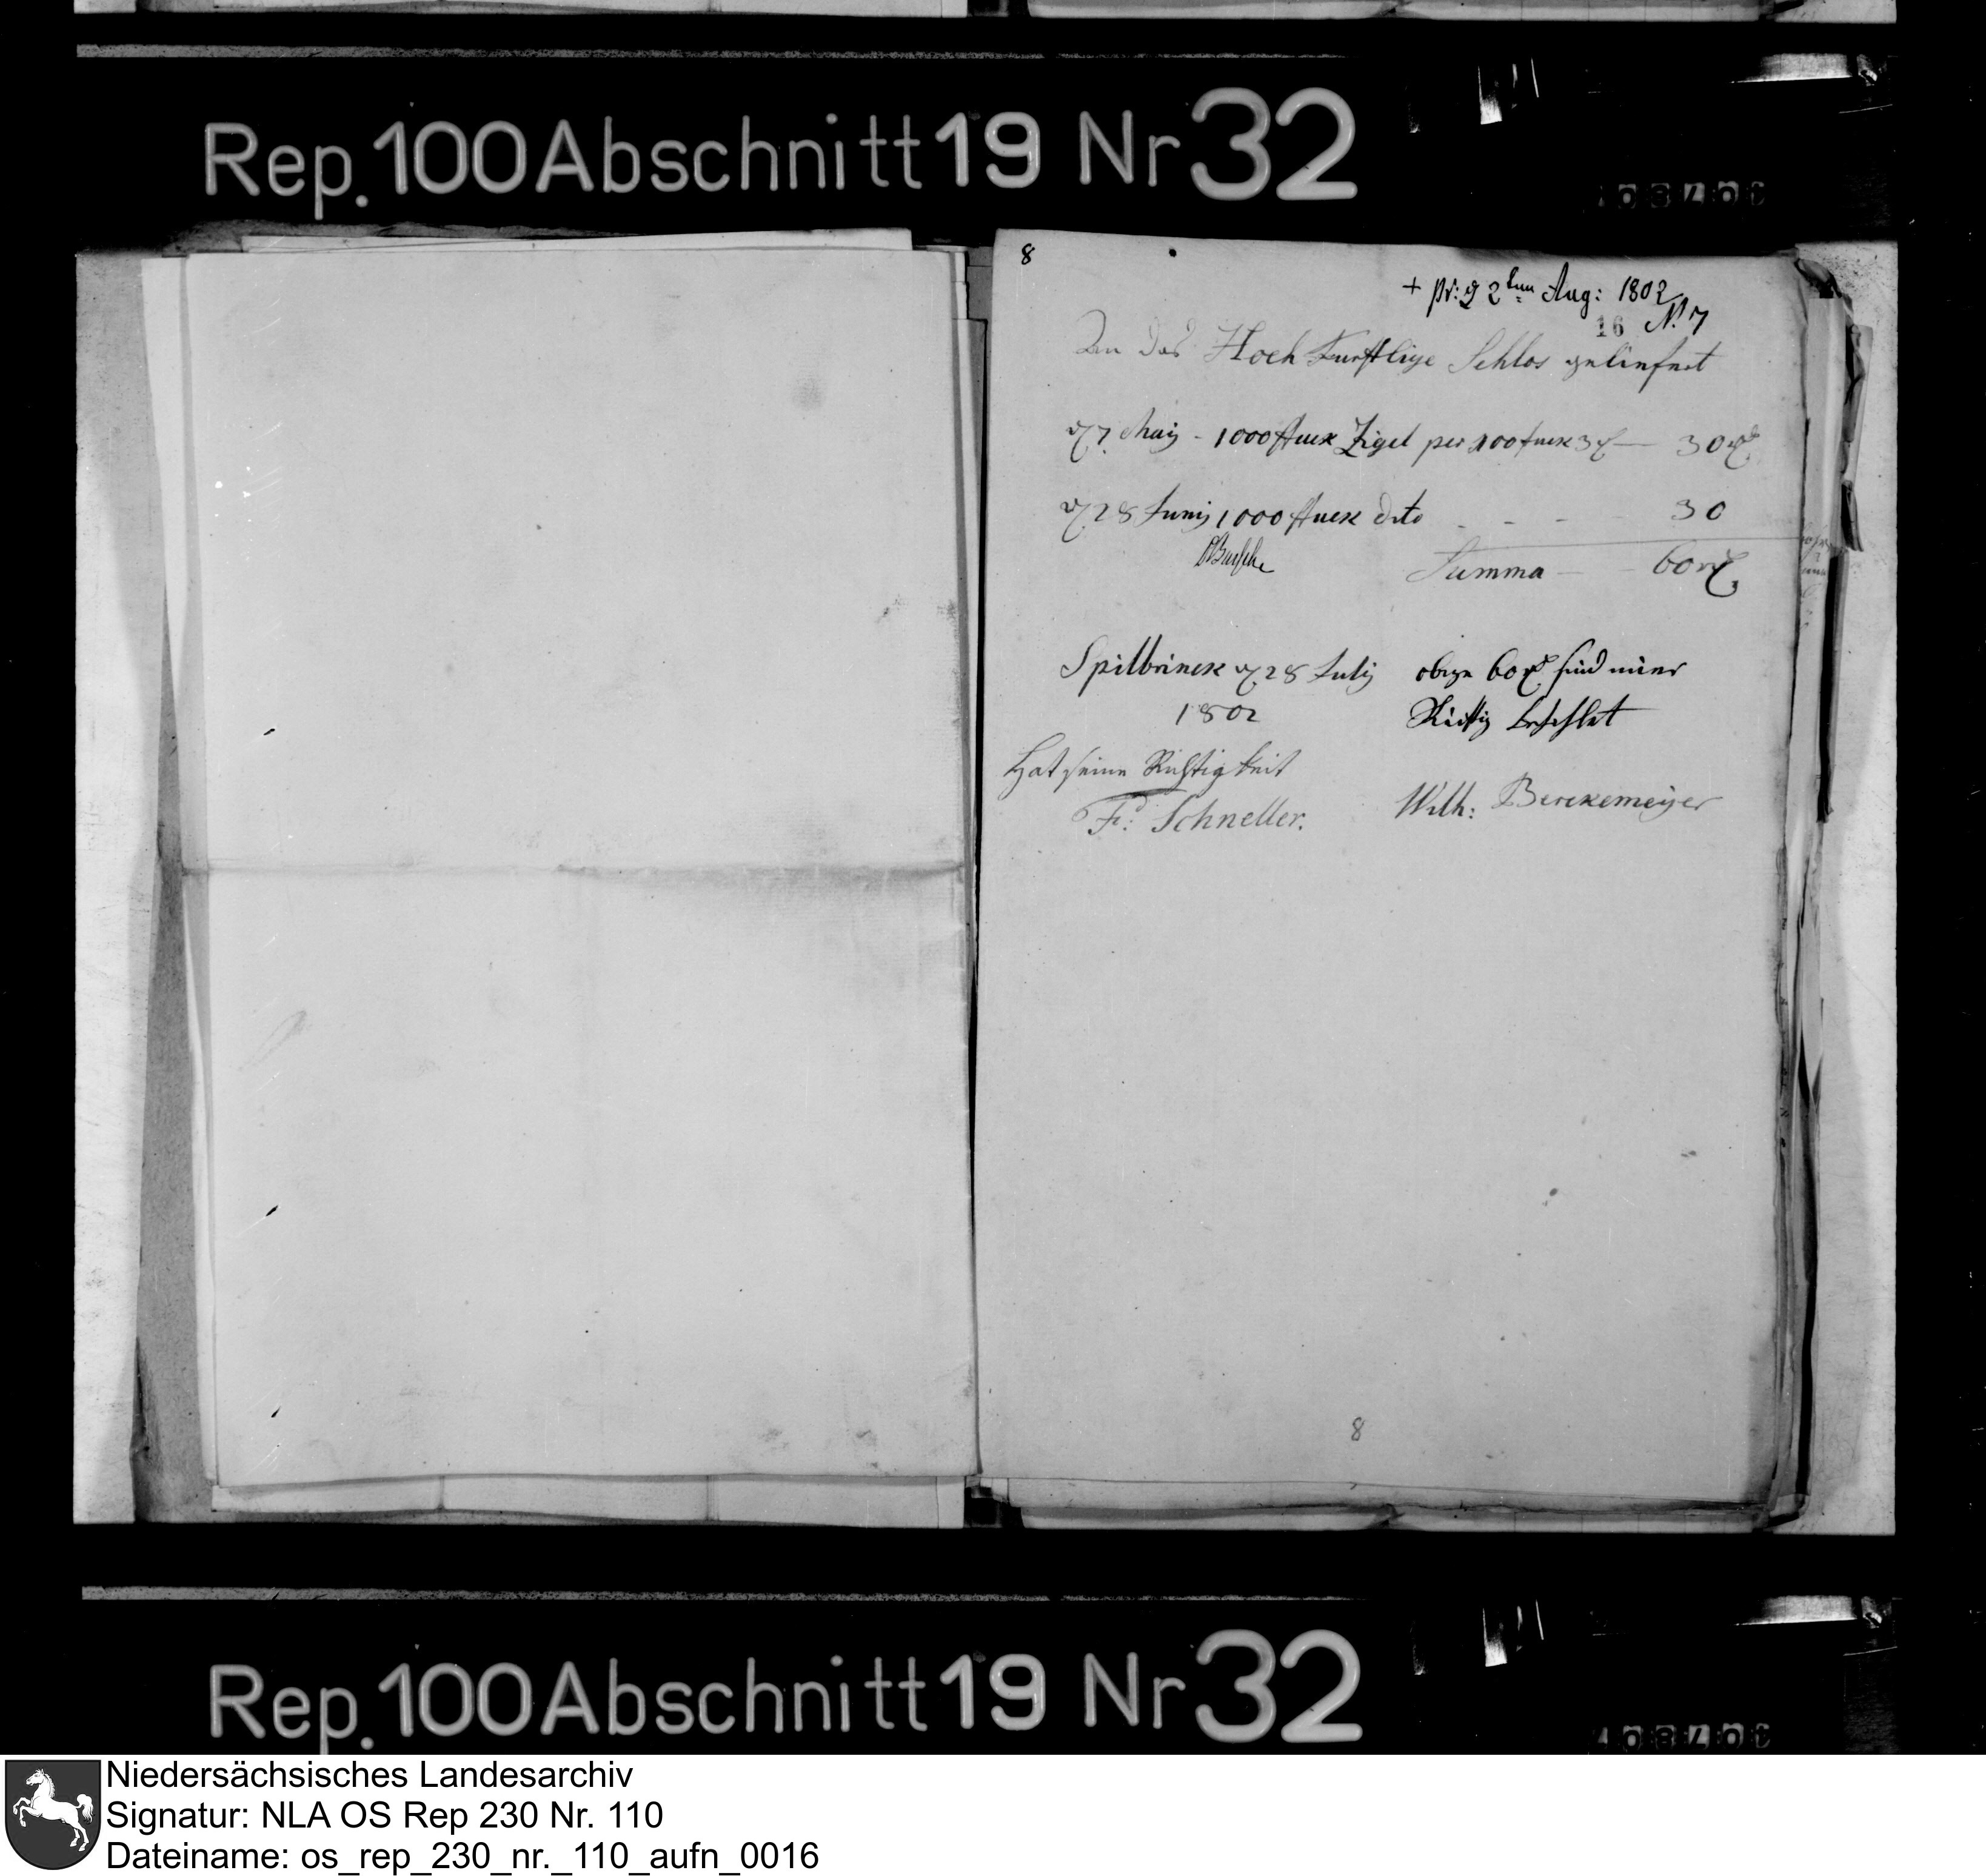 Rep. 100 Abschnitt 19 Nr 32
8
+ pr: d 2ten Aug: 1802
16 N. 7
An das Hoch Furstlige Schlos geliefert
d 7 Maij - 1000 stuck Zigel per 100 stuck 3 rt — 30 rt
d 28 Junij 1000 stuck dito - - - 30
Summa — 60 rt
Spilbrinck d 28 Julij
1802
obige 60 rt sind mier
Richtig bezahlet
Hat seine Richtigkeit
Fd: Schneller.
Wilh: Berckemeijer
8
Rep. 100 Abschnitt 19 Nr 32
Niedersächsisches Landesarchiv
Signatur: NLA OS Rep 230 Nr. 110
Dateiname: os_rep_230_nr._110_aufn_0016